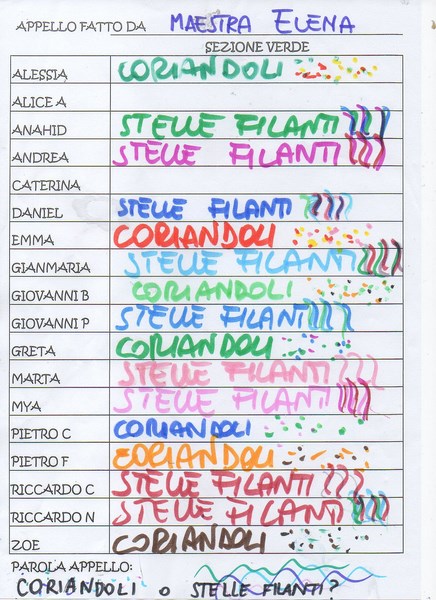 APPELLO FATTO DA MAESTRA ELENA
SEZIONE VERDE
ALESSIA CORIANDOLI
ALICE A
ANAHID STELLE FILANTI
ANDREA STELLE FILANTI
CATERINA
DANIEL STELLE FILANTI
EMMA CORIANDOLI
GIANMARIA STELLE FILANTI
GIOVANNI B CORIANDOLI
GIOVANNI P STELLE FILANTI
GRETA CORIANDOLI
MARTA STELLE FILANTI
MYA STELLE FILANTI
PIETRO C CORIANDOLI
PIETRO F CORIANDOLI
RICCARDO C STELLE FILANTI
RICCARDO N STELLE FILANTI
ZOE CORIANDOLI
PAROLA APPELLO:
CORIANDOLI O STELLE FILANTI?